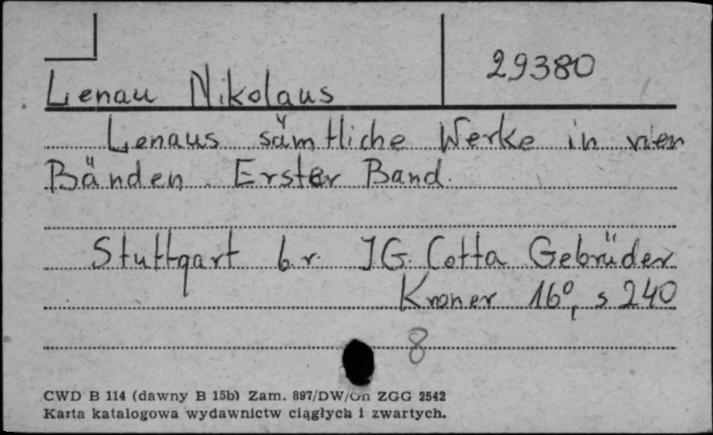 29380
Lenau Nikolaus
Lenaus sämtliche Werke in vier
Bänden. Erster Band.
Stuttgart b.r. JG. Cotta Gebrüder
Kroner 16°, s 240
8
CWD B 114 (dawny B 15b) Zam. 897/DW/On ZGG 2542
Karta katalogowa wydawnictw ciągłych i zwartych.